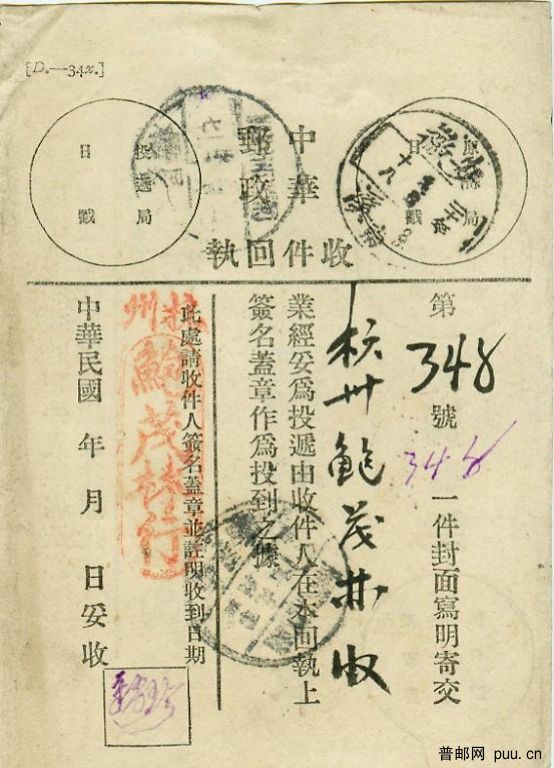 [D.—34x.]
中華郵政
收件回執
原寄局
日戳
投遞局
日戳
第 348 號一件封面寫明寄交
348
杭州鮑茂林收
業經妥爲投遞由收件人在本回執上
簽名蓋章作爲投到之據
此處請收件人簽名蓋章並註明收到日期
杭州
鮑茂林行
中華民國 年 月 日妥收
普邮网 puu.cn